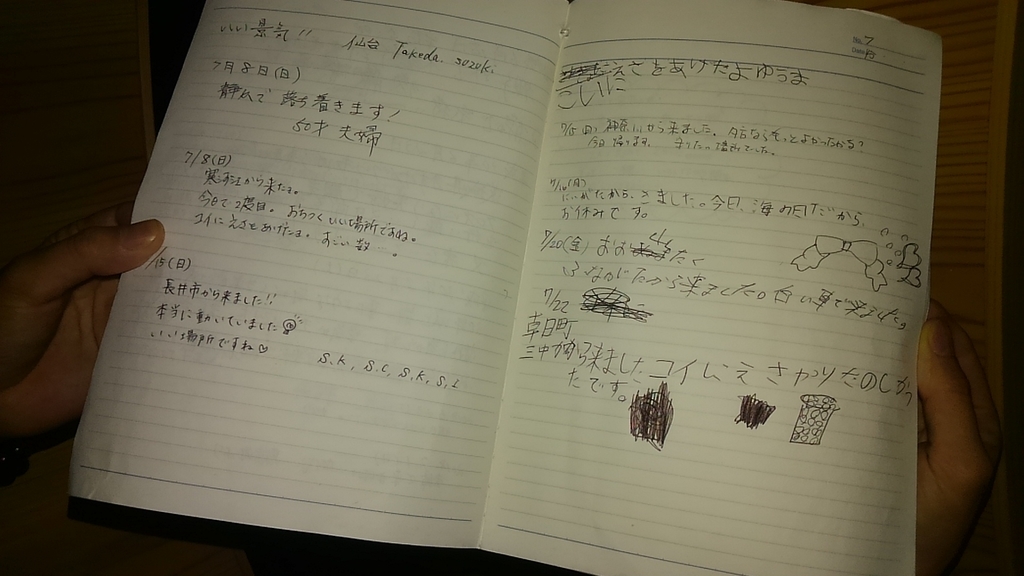 いい景気!!
仙台 Takeda. suzuki.
7月8日(日)
静かで 落ち着きます!
50才 夫婦
7/8(日)
寒河江から来たよ。
今日で2度目。おちつくいい場所ですね。
コイにえさをあげたよ。すごい数…。
/15(日)
長井市から来ました!!
本当に動いていました
いい場所ですね
S.K, S.C, S.K, S.C
No. 7
Date
えさをあげたよ ゆうま
こいに
7/15(日) 神奈川から来ました。
帰ります。
7/16(月)
にいがたから、きました。今日、海の日だから、
お休みです。
7/20(金)
から来ました。白い車で来ました。
7/22
朝日町
三中から来ましたコイにえさやりたのしかっ
たです。